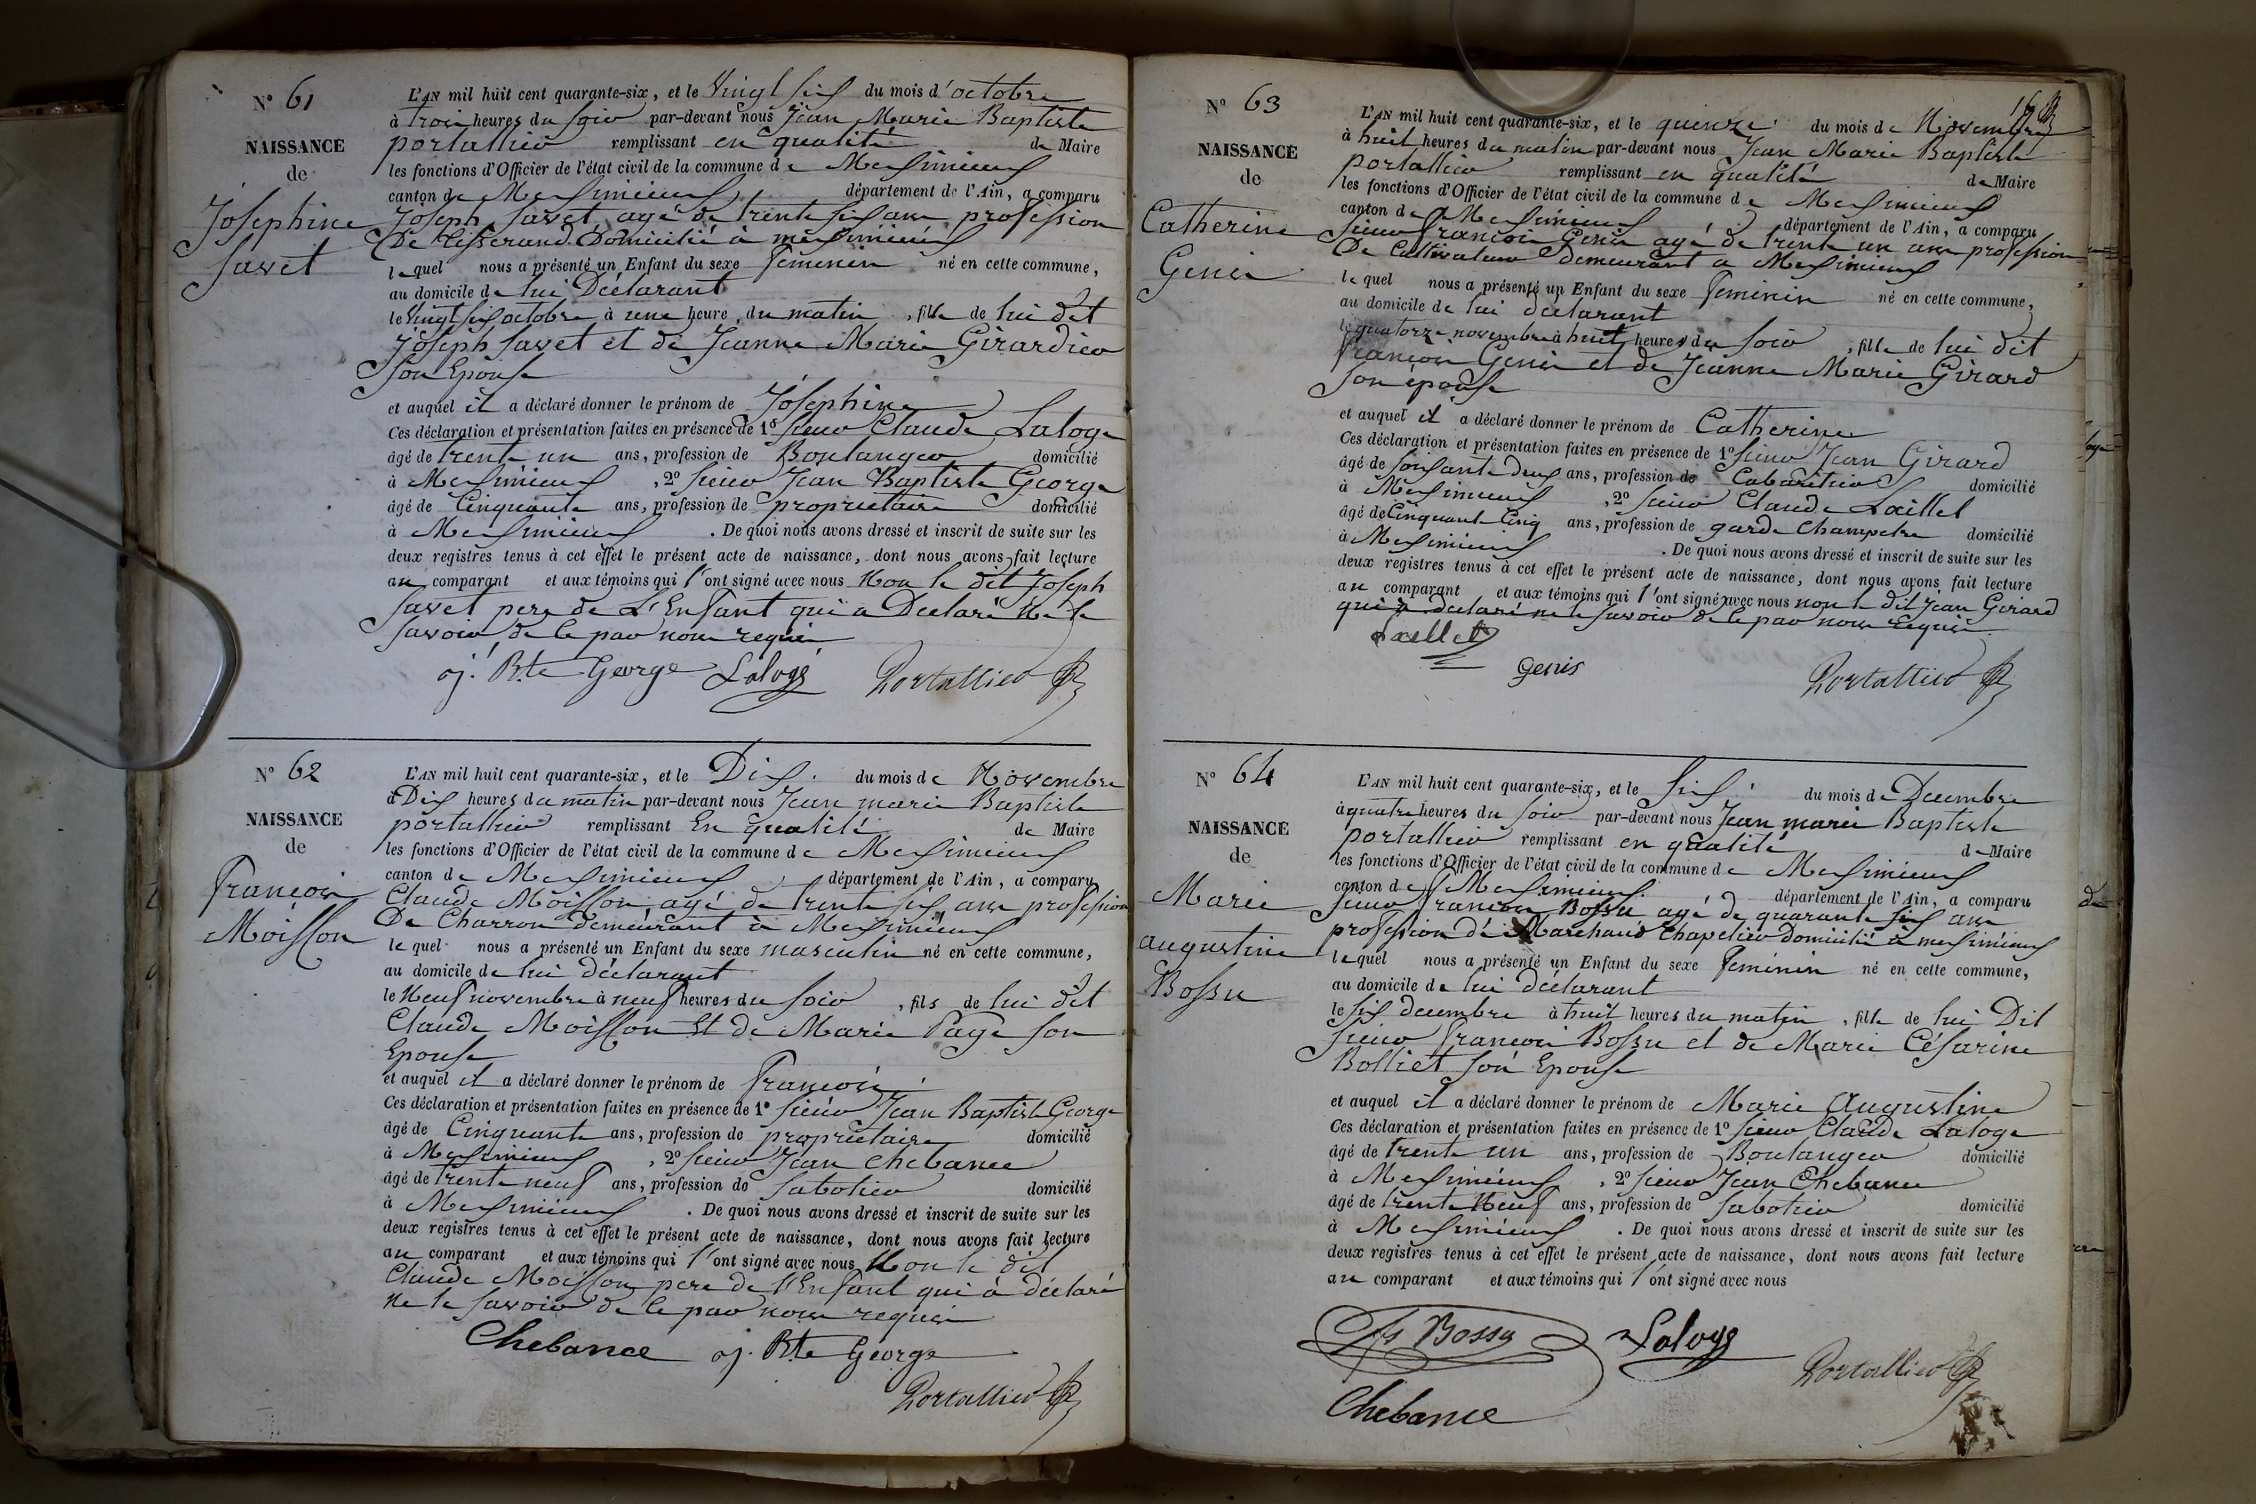 N° 61
NAISSANCE
de
Josephine
Savet
L'AN mil huit cent quarante-six, et le Vingt six du mois d'octobre
à trois heures du soir par-devant nous Jean Marie Baptiste
portallier remplissant en qualité de Maire
les fonctions d'Officier de l'état civil de la commune de Meximieux
canton de Meximieux, département de l'Ain, a comparu
Joseph Savet agé de trente six ans profession
De tisserand Domicilié à meximieux
lequel nous a présenté un Enfant du sexe femenin né en cette commune,
au domicile de lui Déclarant
le Vingt six octobre à une heure du matin, fille de lui dit
Joseph Savet et de Jeanne Marie Girardier
Son Epouse
et auquel il a déclaré donner le prénom de Joséphine
Ces déclaration et présentation faites en présence de 1° Sieur Claude Laloge
âgé de trente un ans, profession de Boulanger domicilié
à Meximieux, 2° Sieur Jean Baptiste George
âgé de Cinquante ans, profession de propriétaire domicilié
à Meximieux. De quoi nous avons dressé et inscrit de suite sur les
deux registres tenus à cet effet le présent acte de naissance, dont nous avons fait lecture
au comparant et aux témoins qui l'ont signé avec nous Non le dit Joseph
Savet pere de L'Enfant qui a Declaré Ne le
Savoir de ce par nous requis
j. Bte George Laloge Portallier
N° 62
NAISSANCE
de
François
Moisson
L'AN mil huit cent quarante-six, et le Dix du mois de Novembre
à Dix heures du matin par-devant nous Jean marie Baptiste
portallier remplissant En qualité de Maire
les fonctions d'Officier de l'état civil de la commune de Meximieux
canton de Meximieux, département de l'Ain, a comparu
Claude Moisson agé de trente six ans profession
De Charron demeurant à Meximieux
lequel nous a présenté un Enfant du sexe masculin né en cette commune,
au domicile de lui déclarant
le Neuf novembre à neuf heures du soir, fils de lui dit
Claude Moisson Et de Marie Page son
Epouse
et auquel il a déclaré donner le prénom de François
Ces déclaration et présentation faites en présence de 1° Sieur Jean Baptiste George
âgé de Cinquante ans, profession de propriétaire domicilié
à Meximieux, 2° Sieur Jean Chebance
âgé de trente neuf ans, profession de Sabotier domicilié
à Meximieux. De quoi nous avons dressé et inscrit de suite sur les
deux registres tenus à cet effet le présent acte de naissance, dont nous avons fait lecture
au comparant et aux témoins qui l'ont signé avec nous Non le dit
Claude Moisson pere de l'Enfant qui à déclaré
Ne le Savoir de ce par nous requis
Chebance j. Bte George
Portallier
N° 63
NAISSANCE
de
Catherine
Genis
L'AN mil huit cent quarante-six, et le quinze du mois de Novembre
à huit heures du matin par-devant nous Jean Marie Baptiste
portallier remplissant en qualité de Maire
les fonctions d'Officier de l'état civil de la commune de Meximieux
canton de Meximieux, département de l'Ain, a comparu
Sieur françois Genis agé de trente un ans profession
De Cultivateur demeurant a Meximieux
lequel nous a présenté un Enfant du sexe feminin né en cette commune,
au domicile de lui déclarant
le quatorze novembre à huit heures du soir, fille de lui dit
françois Genis et de Jeanne Marie Girard
Son épouse
et auquel il a déclaré donner le prénom de Catherine
Ces déclaration et présentation faites en présence de 1° Sieur Jean Girard
âgé de soixante deux ans, profession de Cabaretier domicilié
à Meximieux, 2° Sieur Claude Laillet
âgé de Cinquante Cinq ans, profession de garde Champetre domicilié
à Meximieux. De quoi nous avons dressé et inscrit de suite sur les
deux registres tenus à cet effet le présent acte de naissance, dont nous avons fait lecture
au comparant et aux témoins qui l'ont signé avec nous non le dit Jean Girard
qui à declaré ne le Savoir de ce par nous requis
genis Portallier
N° 64
NAISSANCE
de
Marie
augustine
Bossu
L'AN mil huit cent quarante-six, et le Six du mois de Decembre
à quatre heures du soir par-devant nous Jean marie Baptiste
portallier remplissant en qualité de Maire
les fonctions d'Officier de l'état civil de la commune de Meximieux
canton de Meximieux département de l'Ain, a comparu
Sieur françois Bossu agé de quarante six ans
profession de Marchand Chapelier Domicilié à meximieux
lequel nous a présenté un Enfant du sexe feminin né en cette commune,
au domicile de lui déclarant
le six decembre à huit heures du matin, fille de lui Dit
Sieur françois Bossu et de Marie Césarine
Bolliet son Epouse
et auquel il a déclaré donner le prénom de Marie Augustine
Ces déclaration et présentation faites en présence de 1° Sieur Claude Laloge
âgé de trente un ans, profession de Boulanger domicilié
à Meximieux, 2° Sieur Jean Chebance
âgé de trente Neuf ans, profession de Sabotier domicilié
à Meximieux. De quoi nous avons dressé et inscrit de suite sur les
deux registres tenus à cet effet le présent acte de naissance, dont nous avons fait lecture
au comparant et aux témoins qui l'ont signé avec nous
fs Bossu Laloge Portallier
Chebance